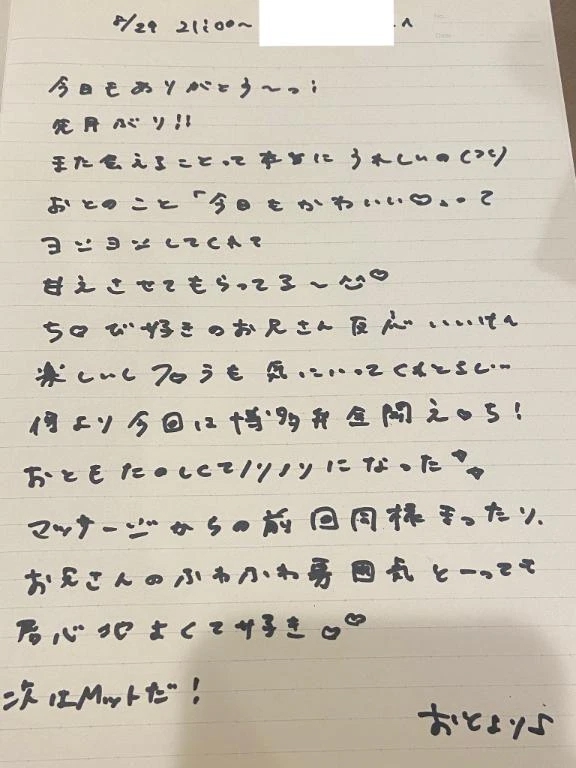 8/29 21:00〜 へ
No.
Date
今日もありがとう〜っ!
先月ぶり!!
また会えることって本当にうれしいの(つ)
おとのこと「今日もかわいい♡」って
ヨシヨシしてくれて
甘えさせてもらってる〜♡
ち○び好きのお兄さん反応いいけん
楽しいしフ○ラも気にいってくれとるし…
何より今回は博多弁全開え○ち!
おともたのしくてノリノリになった
マッサージからの前回同様まったり、
お兄さんのふわふわ雰囲気とーっても
居心地よくて好き♡♡
次はMットだ!
おとより♪